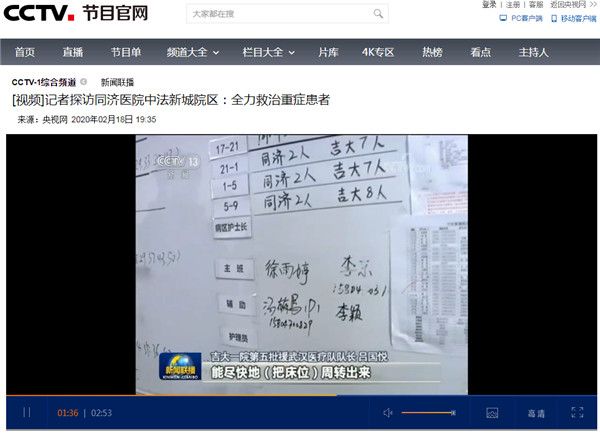 CCTV. 节目官网
大家都在搜
登录 | 注册 | 客服 返回央视网
PC客户端 移动客户端
首页 直播 节目单 频道大全 栏目大全 片库 4K专区 热榜 看点 主持人
CCTV-1综合频道 新闻联播
[视频]记者探访同济医院中法新城院区：全力救治重症患者
来源：央视网 2020年02月18日 19:35
CCTV 13
新闻
17-21 吉大7人
21-1 同济2人 吉大7人
1-5 同济2人 吉大7人
5-9 同济2人 吉大8人
病区护士长
主班 徐雨婷
辅助 李颖
护理员
新闻联播
吉大一院第五批援武汉医疗队队长 吕国悦
能尽快地（把床位）周转出来
01:36 / 02:53
高清